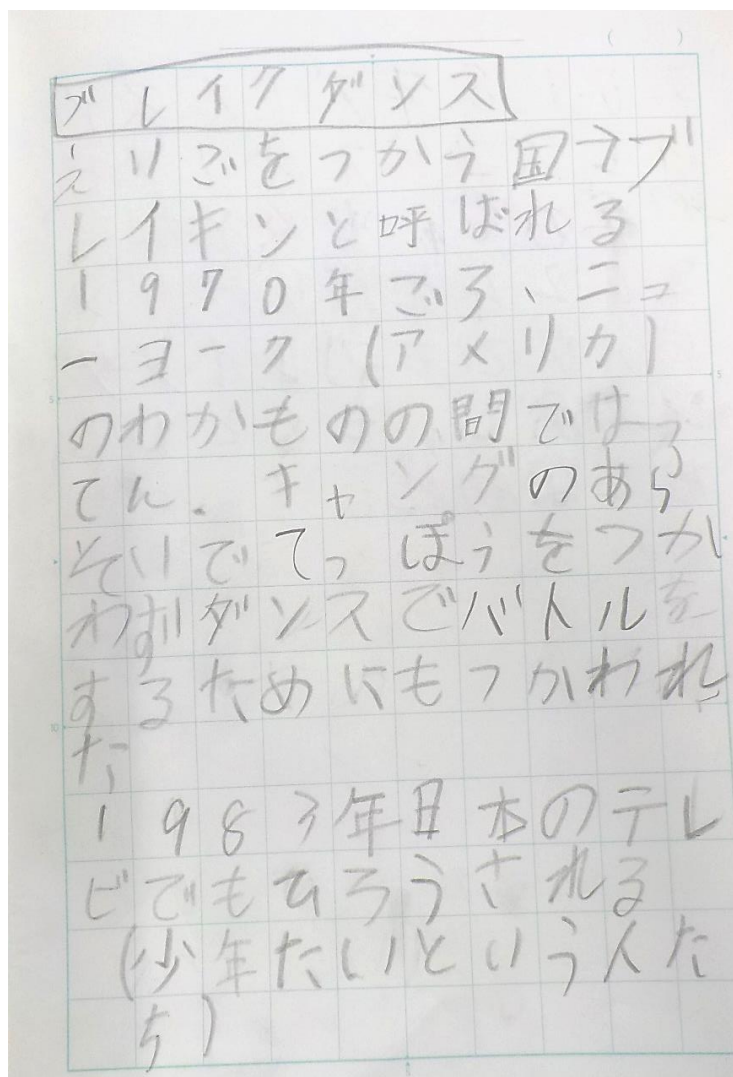 ブレイクダンス
えいごをつかう国ラブ
レイキンと呼ばれる
1970年ごろ、ニュ
ーヨーク(アメリカ)
のわかものの間ではっ
てん.ギャングのあら
そいでてっぽうをつか
わずダンスでバトルを
するためにもつかわれ
た
1983年日本のテレ
ビでもひろうされる
(少年たいという人た
ち)